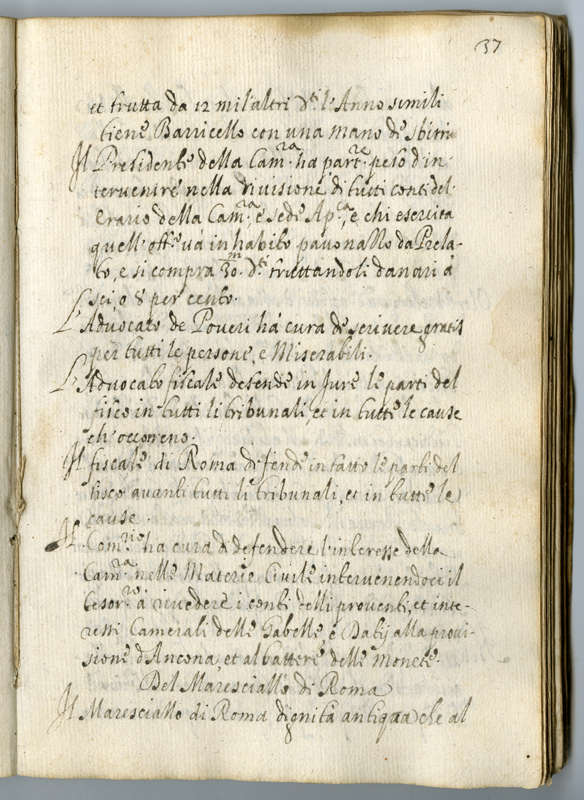 37
et frutta da 12 mil'altri d.ti l'Anno simili
tiene Barricello con una mano de sbirri
Il Presidente della Cam.ra ha part.re peso d'in-
tervenire nella divisione di tutti conti del
Erario della Cam.ra e sede Ap.ca, e chi esercita
quell'off.o va in habito pavonazzo da Prela-
to, e si compra 30.m d.ti fruttandoli danari à
sei, o 8 per cento.
L'Advocato de Poveri ha cura de scrivere gratis
per tutti le persone, e Miserabili.
L'Advocato fiscale defende in Jure le parti del
fisco in tutti li tribunali, et in tutte le cause
ch'occorreno.
Il fiscale di Roma defende in fatto le parti del
fisco avanti tutti li tribunali, et in tutte le
cause.
Il Com.rio ha cura d defendere l'interesse della
Cam.ra nelle Materie Civile intervenendoci il
tesor.re à rivedere i conti delli proventi, et inte-
ressi Camerali delle Gabelle, e Datij alla provi-
sione d'Ancona, et al battere delle Monete.
Del Maresciallo di Roma
Il Maresciallo di Roma dignità antiqua che al